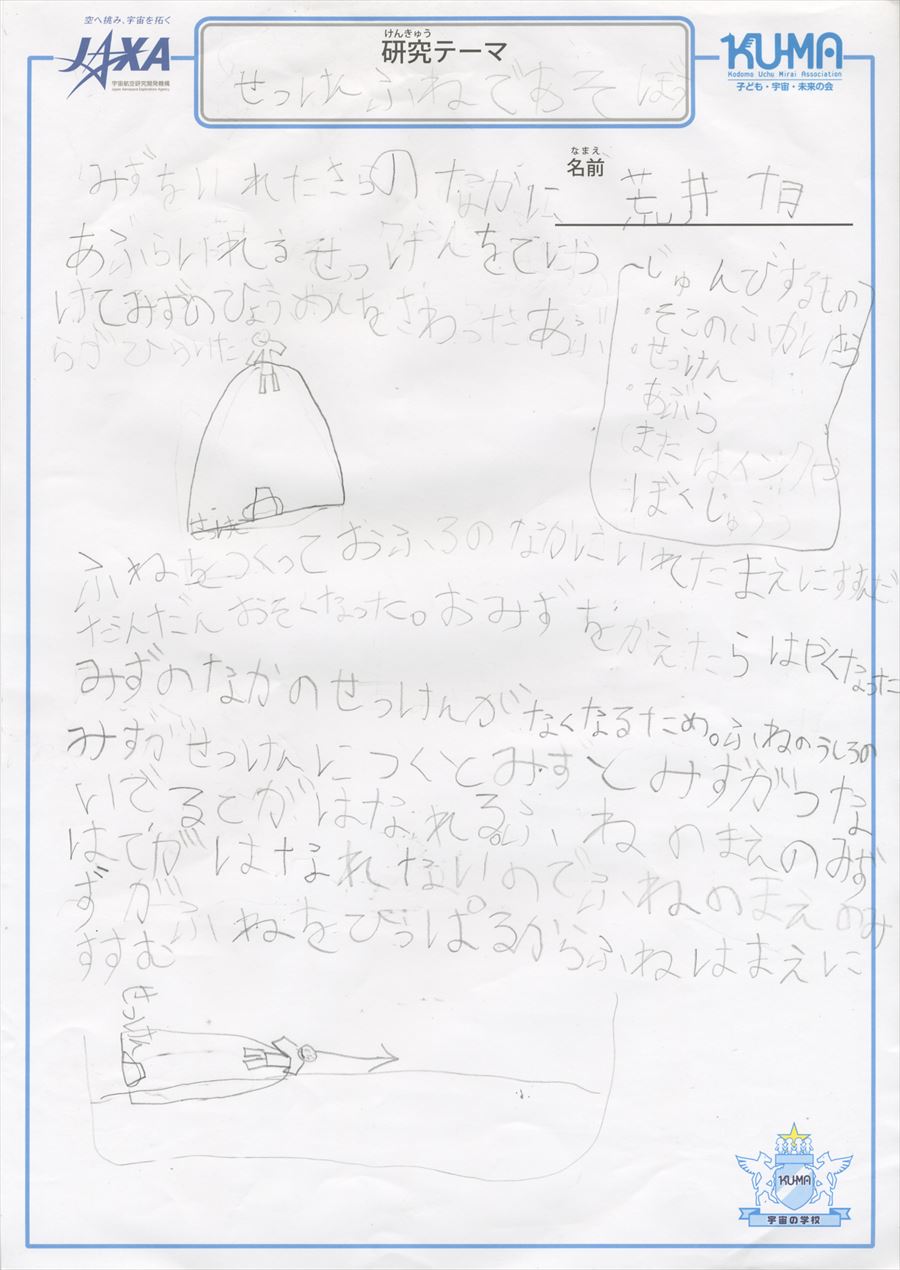 空へ挑み、宇宙を拓く
JAXA
宇宙航空研究開発機構
Japan Aerospace Exploration Agency
けんきゅう
研究テーマ
せっけんふねであそぼう
KU-MA
Kodomo Uchu Mirai Association
子ども・宇宙・未来の会
なまえ
名前
荒井
みずをいれたさらのなかに
あぶらいれるせっけんをてにつ
けてみずのひょうめんをさわったあぶ
らがひらけた
じゅんびするもの
・そこのふかい
・せっけん
・あぶら
(またはインクや
ぼくじゅう)
せっけん
ふねをつくっておふろのなかにいれたまえにすすんだ
だんだんおそくなった。おみずをかえたらはやくなった
みずのなかのせっけんがなくなるため。ふねのうしろの
みずがせっけんにつくとみずとみずがつな
いでるてがはなれる。ふねのまえのみず
はてがはなれないのでふねのまえのみ
ずがふねをひっぱるからふねはまえに
すすむ
せっけん
KU-MA
宇宙の学校